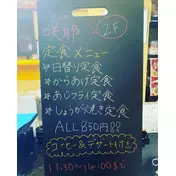 咲耶 2F
定食メニュー
*日替り定食
*からあげ定食
*あじフライ定食
*しょうが焼き定食
ALL 850円
コーヒー&デザート付き
11:30〜14:00まで